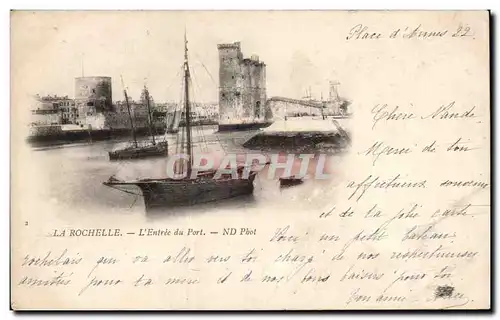 Place d'Armes 22
Chère Nande
Merci de ton
affectueux souvenir
et de la jolie carte.
LA ROCHELLE. - L'Entrée du Port. - ND Phot
Voici un petit bateau
rochelais qui va aller vers toi chargé de nos respectueuses
amitiés pour ta mère et de nos bons baisers pour toi
Ton amie
2
CPRPHIL